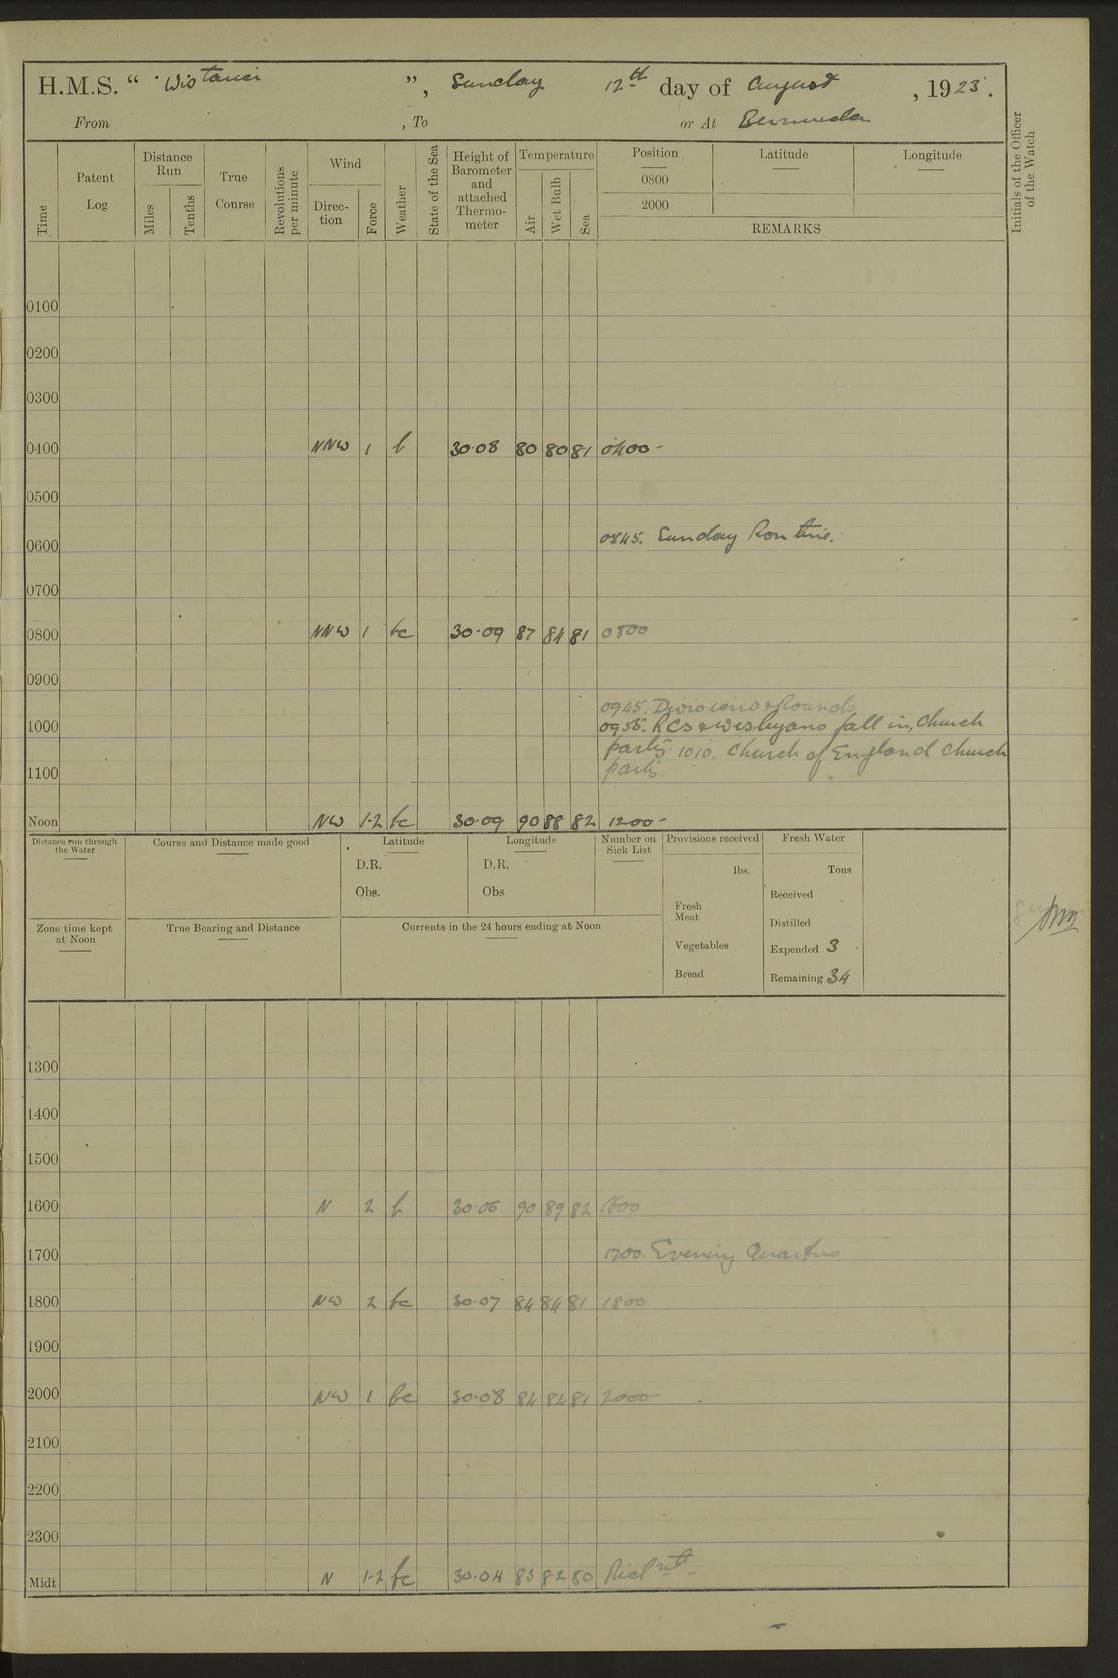 H.M.S. " Wistaria ", Sunday 12th day of August, 1923.
From , To or At Bermuda
Time
Patent Log
Distance Run
Miles
Tenths
True Course
Revolutions per minute
Wind
Direction
Force
Weather
State of the Sea
Height of Barometer and attached Thermometer
Temperature
Air
Wet Bulb
Sea
Position
0800
2000
Latitude
Longitude
REMARKS
Initials of the Officer of the Watch
0100
0200
0300
0400 NNW 1 b 30.08 80 80 81 0400 -
0500
0845. Sunday Routine.
0600
0700
0800 NNW 1 bc 30.09 87 84 81 0800
0900
0945. Divisions & Rounds
1000 0955. RCs & Wesleyans fall in, Church
party 1010. Church of England Church
1100 party
Noon NW 1-2 bc 30.09 90 88 82 1200 -
Distance run through the Water
Course and Distance made good
Latitude
D.R.
Obs.
Longitude
D.R.
Obs
Number on Sick List
Provisions received
lbs.
Fresh Meat
Vegetables
Bread
Fresh Water
Tons
Received
Distilled
Expended 3
Remaining 34
Zone time kept at Noon
True Bearing and Distance
Currents in the 24 hours ending at Noon
1300
1400
1500
1600 N 2 b 30.06 90 89 82 1600
1700 1700. Evening Quarters
1800 NW 2 bc 30.07 84 84 81 1800
1900
2000 NW 1 bc 30.08 84 82 81 2000
2100
2200
2300
Midt N 1-2 bc 30.04 83 82 80 Midnt -